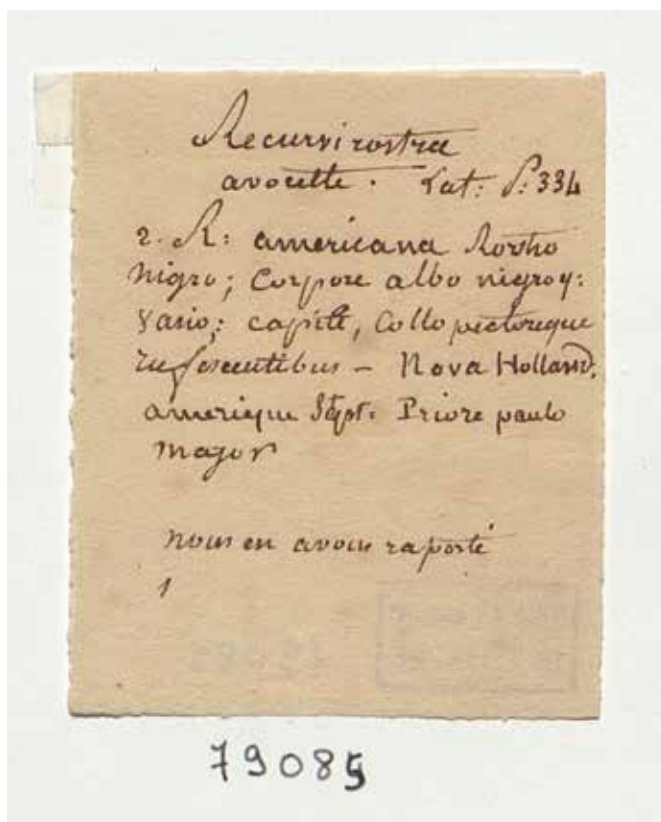 Recurvirostra
avocette. Lat: P: 334
2. R: americana Rostro
nigro; Corpore albo nigroq:
Vario; capite, Collo pectoreque
rufescentibus – Nova Holland.
amerique Sept: Priore paulo
major
nous en avons raporté
1
79085